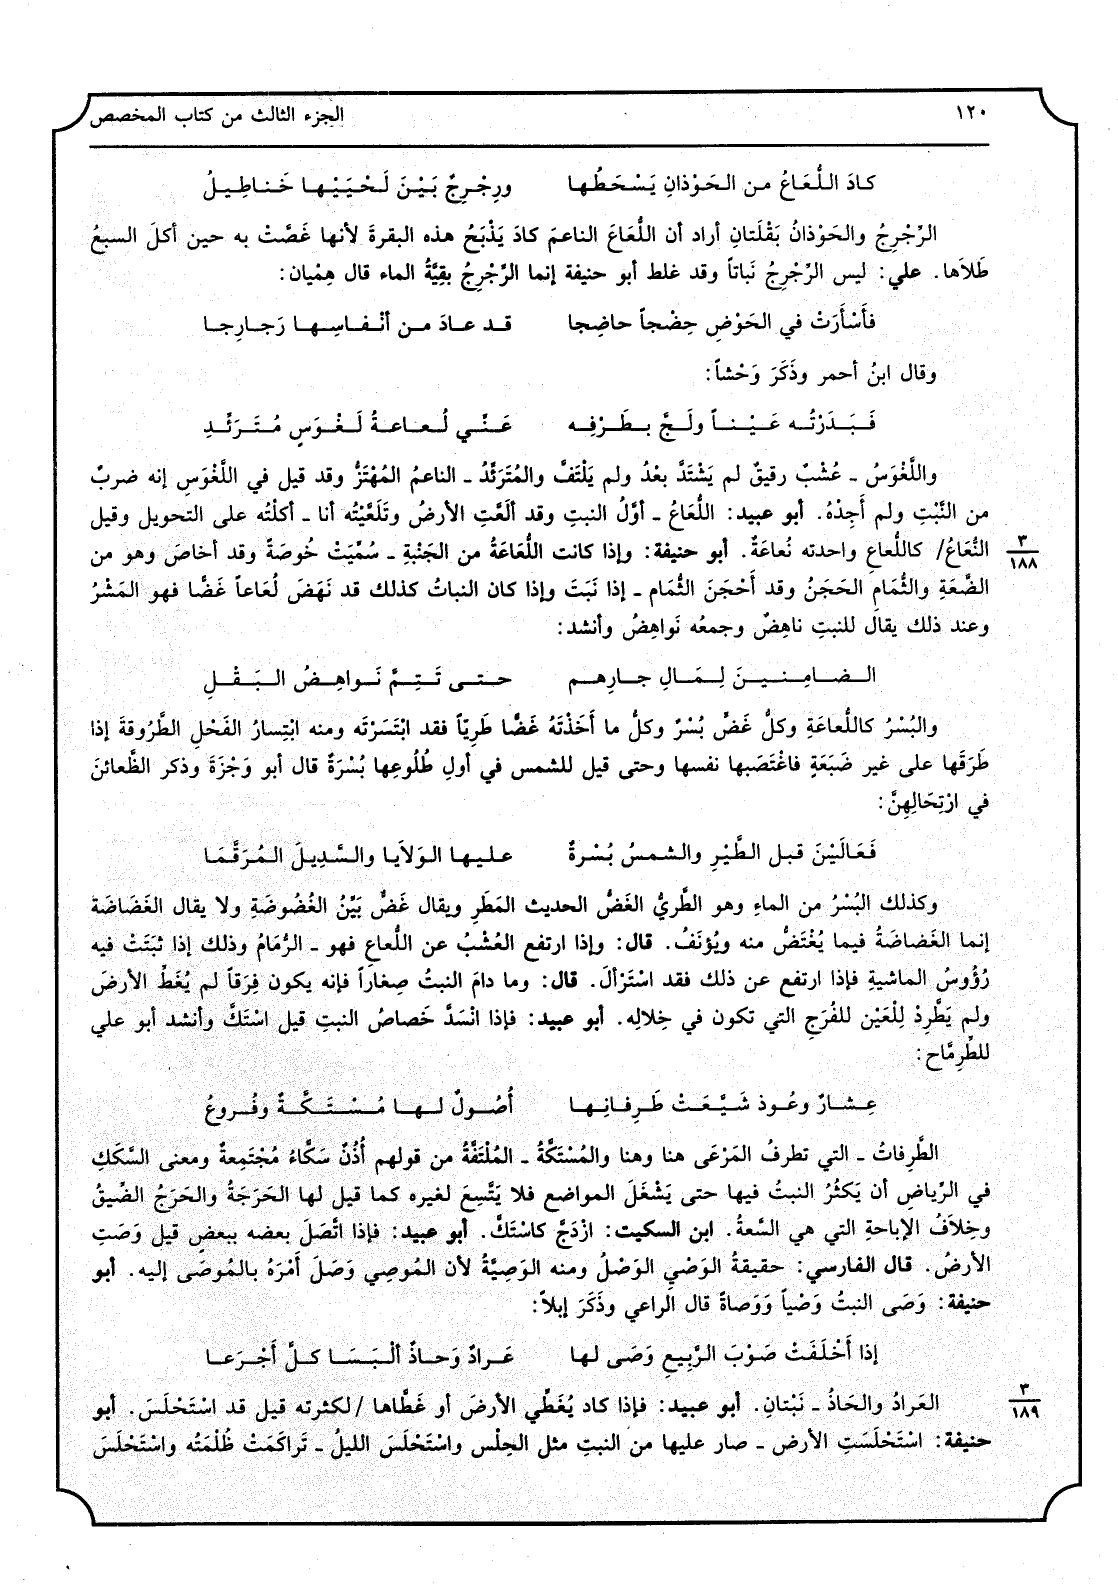 ١٢٠ الجزء الثالث من كتاب المخصص
كادَ اللُّعَاعُ من الحَوْذانِ يَسْحَطُها ورِجْرِجٌ بَيْنَ لَحْيَيْها خَناطِيلُ
الرِّجْرِجُ والحَوْذانُ بَقْلَتانِ أراد أن اللُّعَاعَ الناعمَ كادَ يَذْبَحُ هذه البقرةَ لأنها غَصَّتْ به حين أكلَ السبعُ
طَلاَها. علي: ليس الرِّجْرِجُ نَباتاً وقد غلط أبو حنيفة إنما الرِّجْرِجُ بقِيَّةُ الماء قال هِمْيان:
فأَسْأَرَتْ في الحَوْضِ حِضْجاً حاضِجا قد عادَ من أنْفاسِها رَجارِجا
وقال ابنُ أحمر وذَكَرَ وَحْشاً:
فَبَدَرْتُه عَيْناً ولَجَّ بطَرْفِه عَنِّي لُعاعةُ لَغْوَسٍ مُتَرَئِّدِ
واللَّغْوَسُ ـ عُشْبٌ رقيقٌ لم يَشْتَدَّ بعدُ ولم يَلْتَفَّ والمُتَرَئِّدُ ـ الناعمُ المُهْتَزُّ وقد قيل في اللَّغْوَسِ إنه ضربٌ
من النَّبْتِ ولم أَجِدْهُ. أبو عبيد: اللُّعَاعُ ـ أوَّلُ النبتِ وقد ألَعَّتِ الأرضُ وتَلَعَّيْتُه أنا ـ أكلْتُه على التحويل وقيل
النُّعَاعُ/ كاللُّعاعِ واحدته نُعاعَةٌ. أبو حنيفة: وإذا كانت اللُّعَاعَةُ من الجَنْبةِ ـ سُمِّيَتْ خُوصَةً وقد أخاصَ وهو من ٣
١٨٨
الضَّعَةِ والثُّمَامِ الحَجَنُ وقد أَحْجَنَ الثُّمَام ـ إذا نَبَتَ وإذا كان النباتُ كذلك قد نَهَضَ لُعَاعاً غَضًّا فهو المَشْرُ
وعند ذلك يقالُ للنبتِ ناهِضٌ وجمعُه نَواهِضُ وأنشد:
الضامِنينَ لِمَالِ جارِهم حتى تَتِمَّ نَواهِضُ البَقْلِ
والبُسْرُ كاللُّعاعَةِ وكلُّ غَضٍّ بُسْرٌ وكلُّ ما أَخَذْتَهُ غَضًّا طَرِيّاً فقد ابْتَسَرْتَه ومنه ابْتِسارُ الفَحْلِ الطَّرُوقةَ إذا
طَرَقَها على غير ضَبَعَةٍ فاغْتَصَبها نفسها وحتى قيل للشمس في أولِ طُلُوعِها بُسْرَةٌ قال أبو وَجْزَةَ وذكر الظَّعائنَ
في ارْتِحَالِهِنَّ:
فَعَالَيْنَ قبل الطَّيْرِ والشمسُ بُسْرةٌ عليها الوَلاَيا والسَّدِيلَ المُرَقَّمَا
وكذلك البُسْرُ من الماءِ وهو الطَّرِيُّ الغَضُّ الحديث المَطَرِ ويقال غَضٌّ بَيِّنُ الغُضُوضَةِ ولا يقال الغَضَاضَة
إنما الغَضاضَةُ فيما يُغْتَضُّ منه ويُؤنَفُ. قال: وإذا ارتفع العُشْبُ عن اللُّعاع فهو ـ الرُّمَامُ وذلك إذا ثبَتَتْ فيه
رُؤوسُ الماشيةِ فإذا ارتفع عن ذلك فقد اسْتَرْألَ. قال: وما دامَ النبتُ صِغاراً فإنه يكون فِرَقاً لم يُغَطِّ الأرضَ
ولم يَطَّرِدْ لِلْعَيْن للفُرَجِ التي تكون في خِلالِه. أبو عبيد: فإذا انْسَدَّ خَصاصُ النبتِ قيل اسْتَكَّ وأنشد أبو علي
للطِّرِمَّاح:
عِشارٌ وعُوذ شَيَّعَتْ طَرِفانِها أُصُولٌ لها مُسْتَكَّةٌ وفُروعُ
الطَّرِفاتُ ـ التي تطرفُ المَرْعَى هنا وهنا والمُسْتَكَّةُ ـ المُلْتَفَّةُ من قولهم أُذُنٌ سَكَّاءُ مُجْتَمِعةٌ ومعنى السَّكَكِ
في الرياضِ أن يَكثُرُ النبتُ فيها حتى يَشْغَلَ المواضع فلا يَتَّسِعَ لغيره كما قيل لها الحَرَجَةُ والحَرَجُ الضِّيقُ
وخِلاَفُ الإباحةِ التي هي السَّعةُ. ابن السكيت: ازْدَجَّ كاسْتَكَّ. أبو عبيد: فإذا اتَّصَلَ بعضه ببعضٍ قيل وَصَتِ
الأرضُ. قال الفارسي: حقيقةُ الوَصْيِ الوَصْلُ ومنه الوَصِيَّةُ لأن المُوصِي وَصَلَ أَمْرَهُ بالمُوصَى إليه. أبو
حنيفة: وَصَى النبتُ وَصْياً وَوَصاةً قال الراعي وذَكَرَ إبلاً:
إذا أَخْلَفَتْ صَوْبَ الرَّبِيعِ وَصَى لها عَرادٌ وَحاذٌ ألْبَسَا كلَّ أَجْرَعا
العَرادُ والحَاذُ ـ نَبْتانِ. أبو عبيد: فإذا كاد يُغَطِّي الأرضَ أو غَطَّاها /لكثرته قيل قد اسْتَحْلَسَ. أبو ٣
١٨٩
حنيفة: اسْتَحْلَسَتِ الأرض ـ صار عليها من النبتِ مثل الحِلْس واسْتَحْلَسَ الليلُ ـ تَراكَمَتْ ظُلْمَتُه واسْتَحْلَسَ